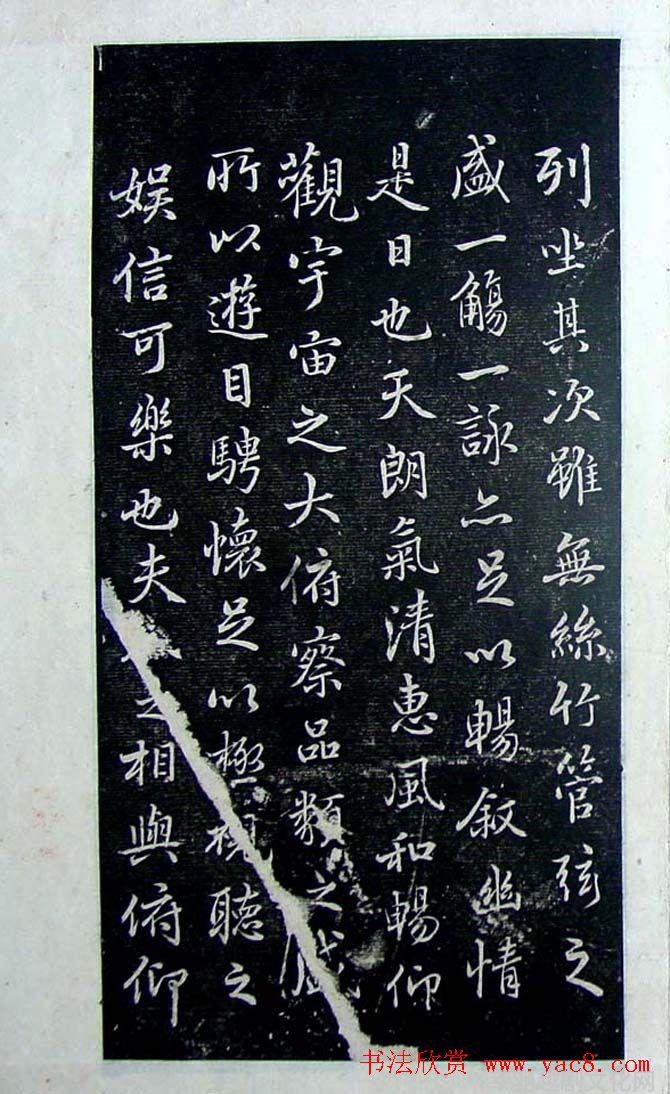 列坐其次雖無絲竹管弦之
盛一觴一詠亦足以暢叙幽情
是日也天朗氣清惠風和暢仰
觀宇宙之大俯察品類之盛
所以遊目騁懷足以極視聽之
娱信可樂也夫人之相與俯仰
书法欣赏 www.yac8.com